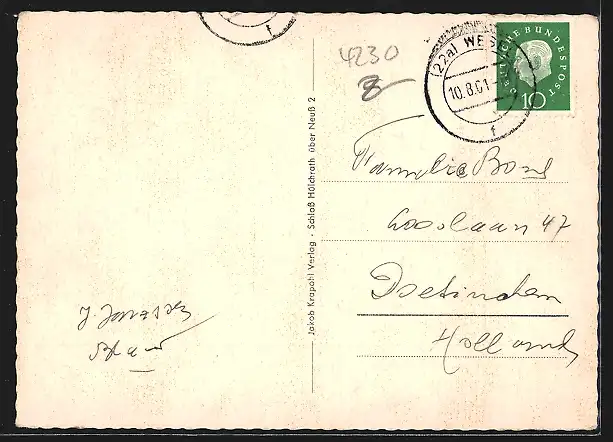 4230
8
(22a) WESEL
10.8.61
f
DEUTSCHE BUNDESPOST
10
f
Jakob Krapohl Verlag · Schloß Hülchrath über Neuß 2
Familie Bons
47
Doetinchem
Holland
J.